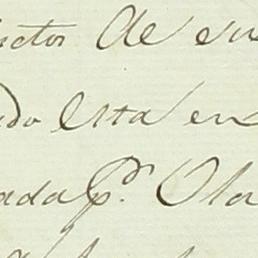 ctos de su
do esta en
ada p.r Ola